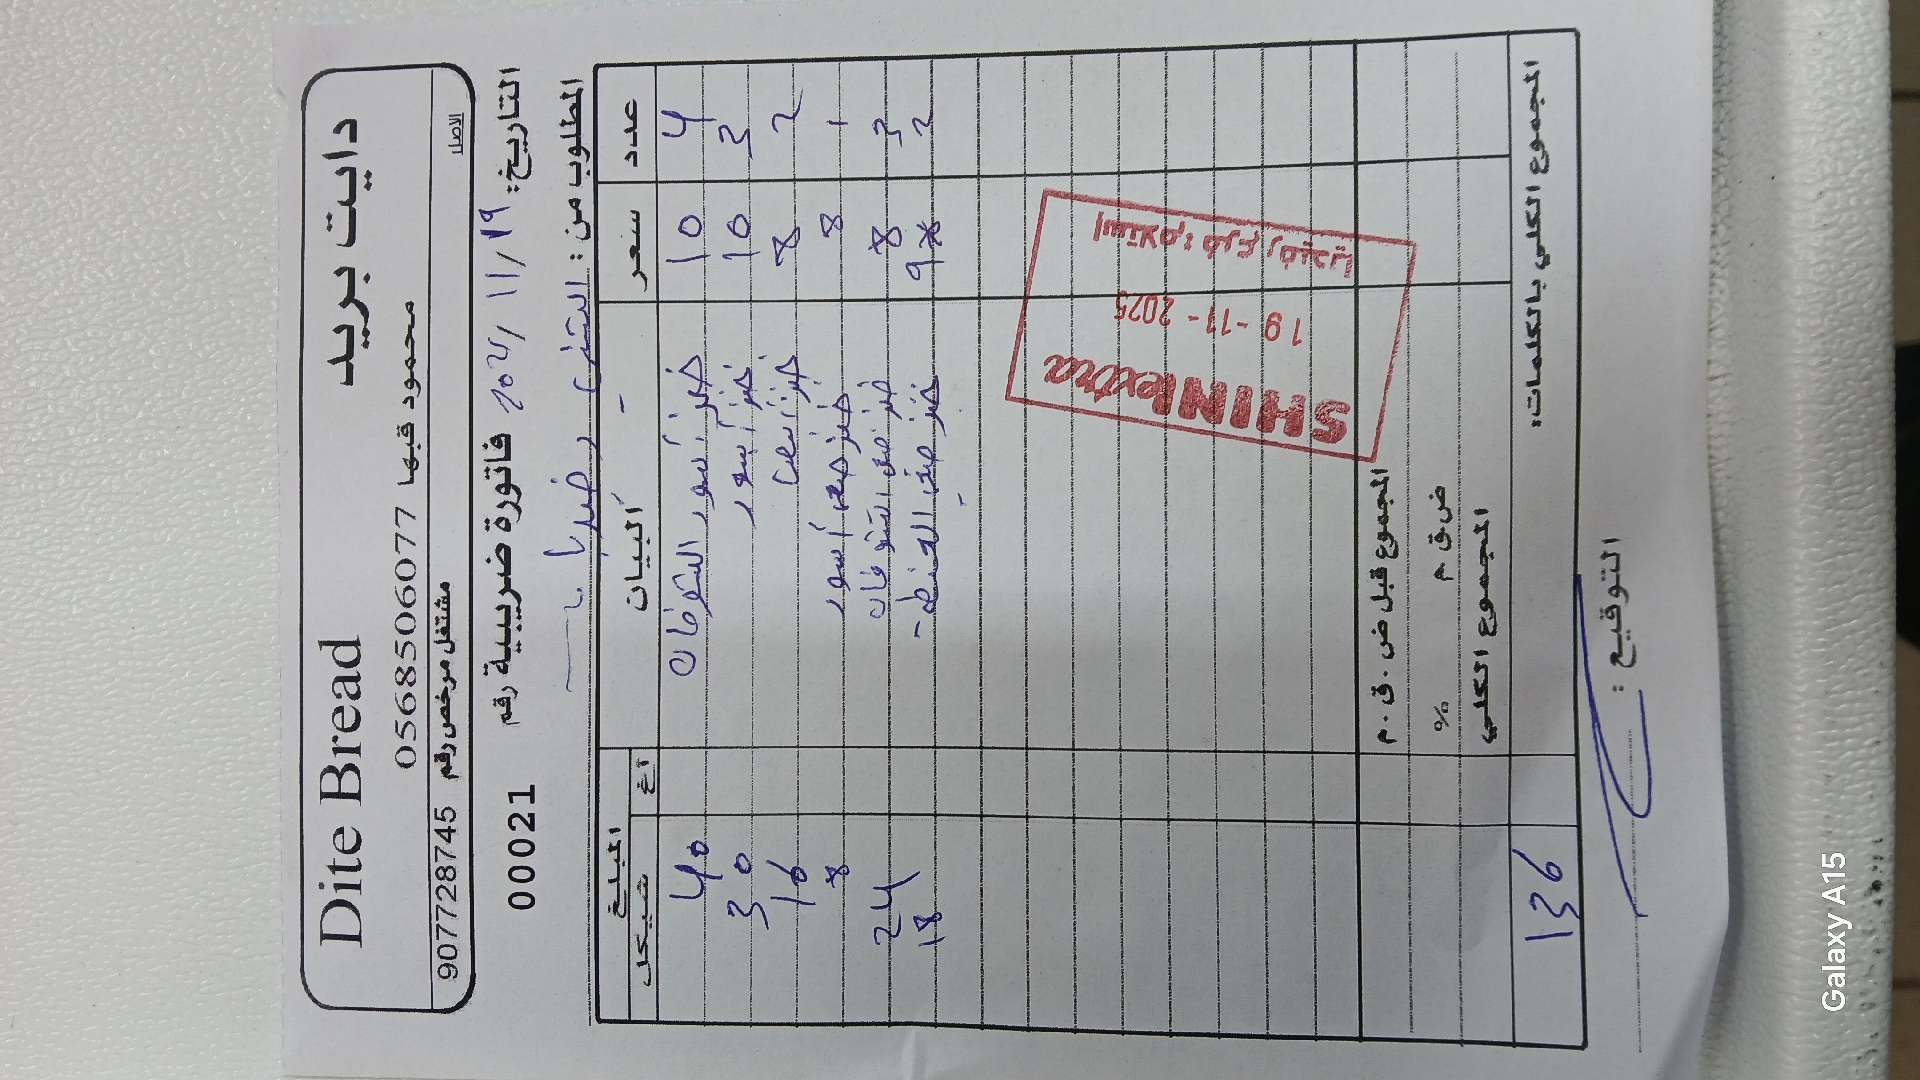 Dite Bread دايت بريد
0568506077 محمود قبها
907728745 مشتغل مرخص رقم الاصل
00021 فاتورة ضريبية رقم التاريخ: ١٩/١١/
المطلوب من:
عدد سعر البيان المبلغ
شيكل آغ
4 10 خبز أسمر الشوفان 40
3 10 خبز أسمر 30
2 8 خبز 16
1 8 خبز أسمر 8
3 8 خبز الشوفان 24
2 9 خبز 18
SHINI extra
19-11-2025
إستلام: فرع رفيديا
المجموع قبل ض.ق.م
% ض.ق.م
المجموع الكلي
المجموع الكلي بالكلمات: 136
التوقيع:
Galaxy A15